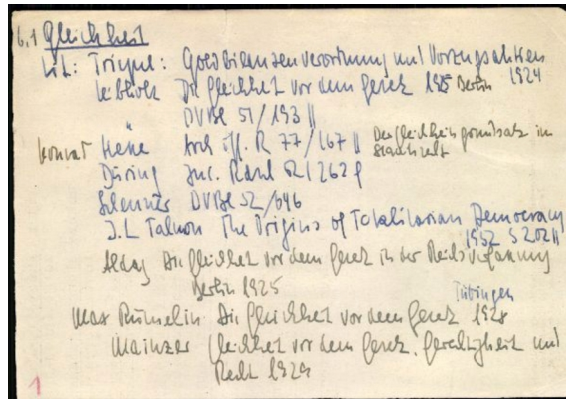 6,1 Gleichheit
Lit: Triepel: Goldbilanzenverordnung und Vorzugsaktien 1924
Leibholz Die Gleichheit vor dem Gesetz 1925 Berlin
" DVBl 51/193 ||
Konrad Hesse Arch öff. R 77/167 || Der Gleichheitsgrundsatz im Staatsrecht
Düring Jur. 52/262 f
DVBl 52/646
J.L Talmon The Origins of Totalitarian Democracy
1952 S 202 ||
Aldag Die Gleichheit vor dem Gesetz in der Reichsverfassung
Berlin 1925
Max Rümelin Die Gleichheit vor dem Gesetz Tübingen 1928
Mainzer Gleichheit vor dem Gesetz, Gerechtigkeit und
Recht 1929
1